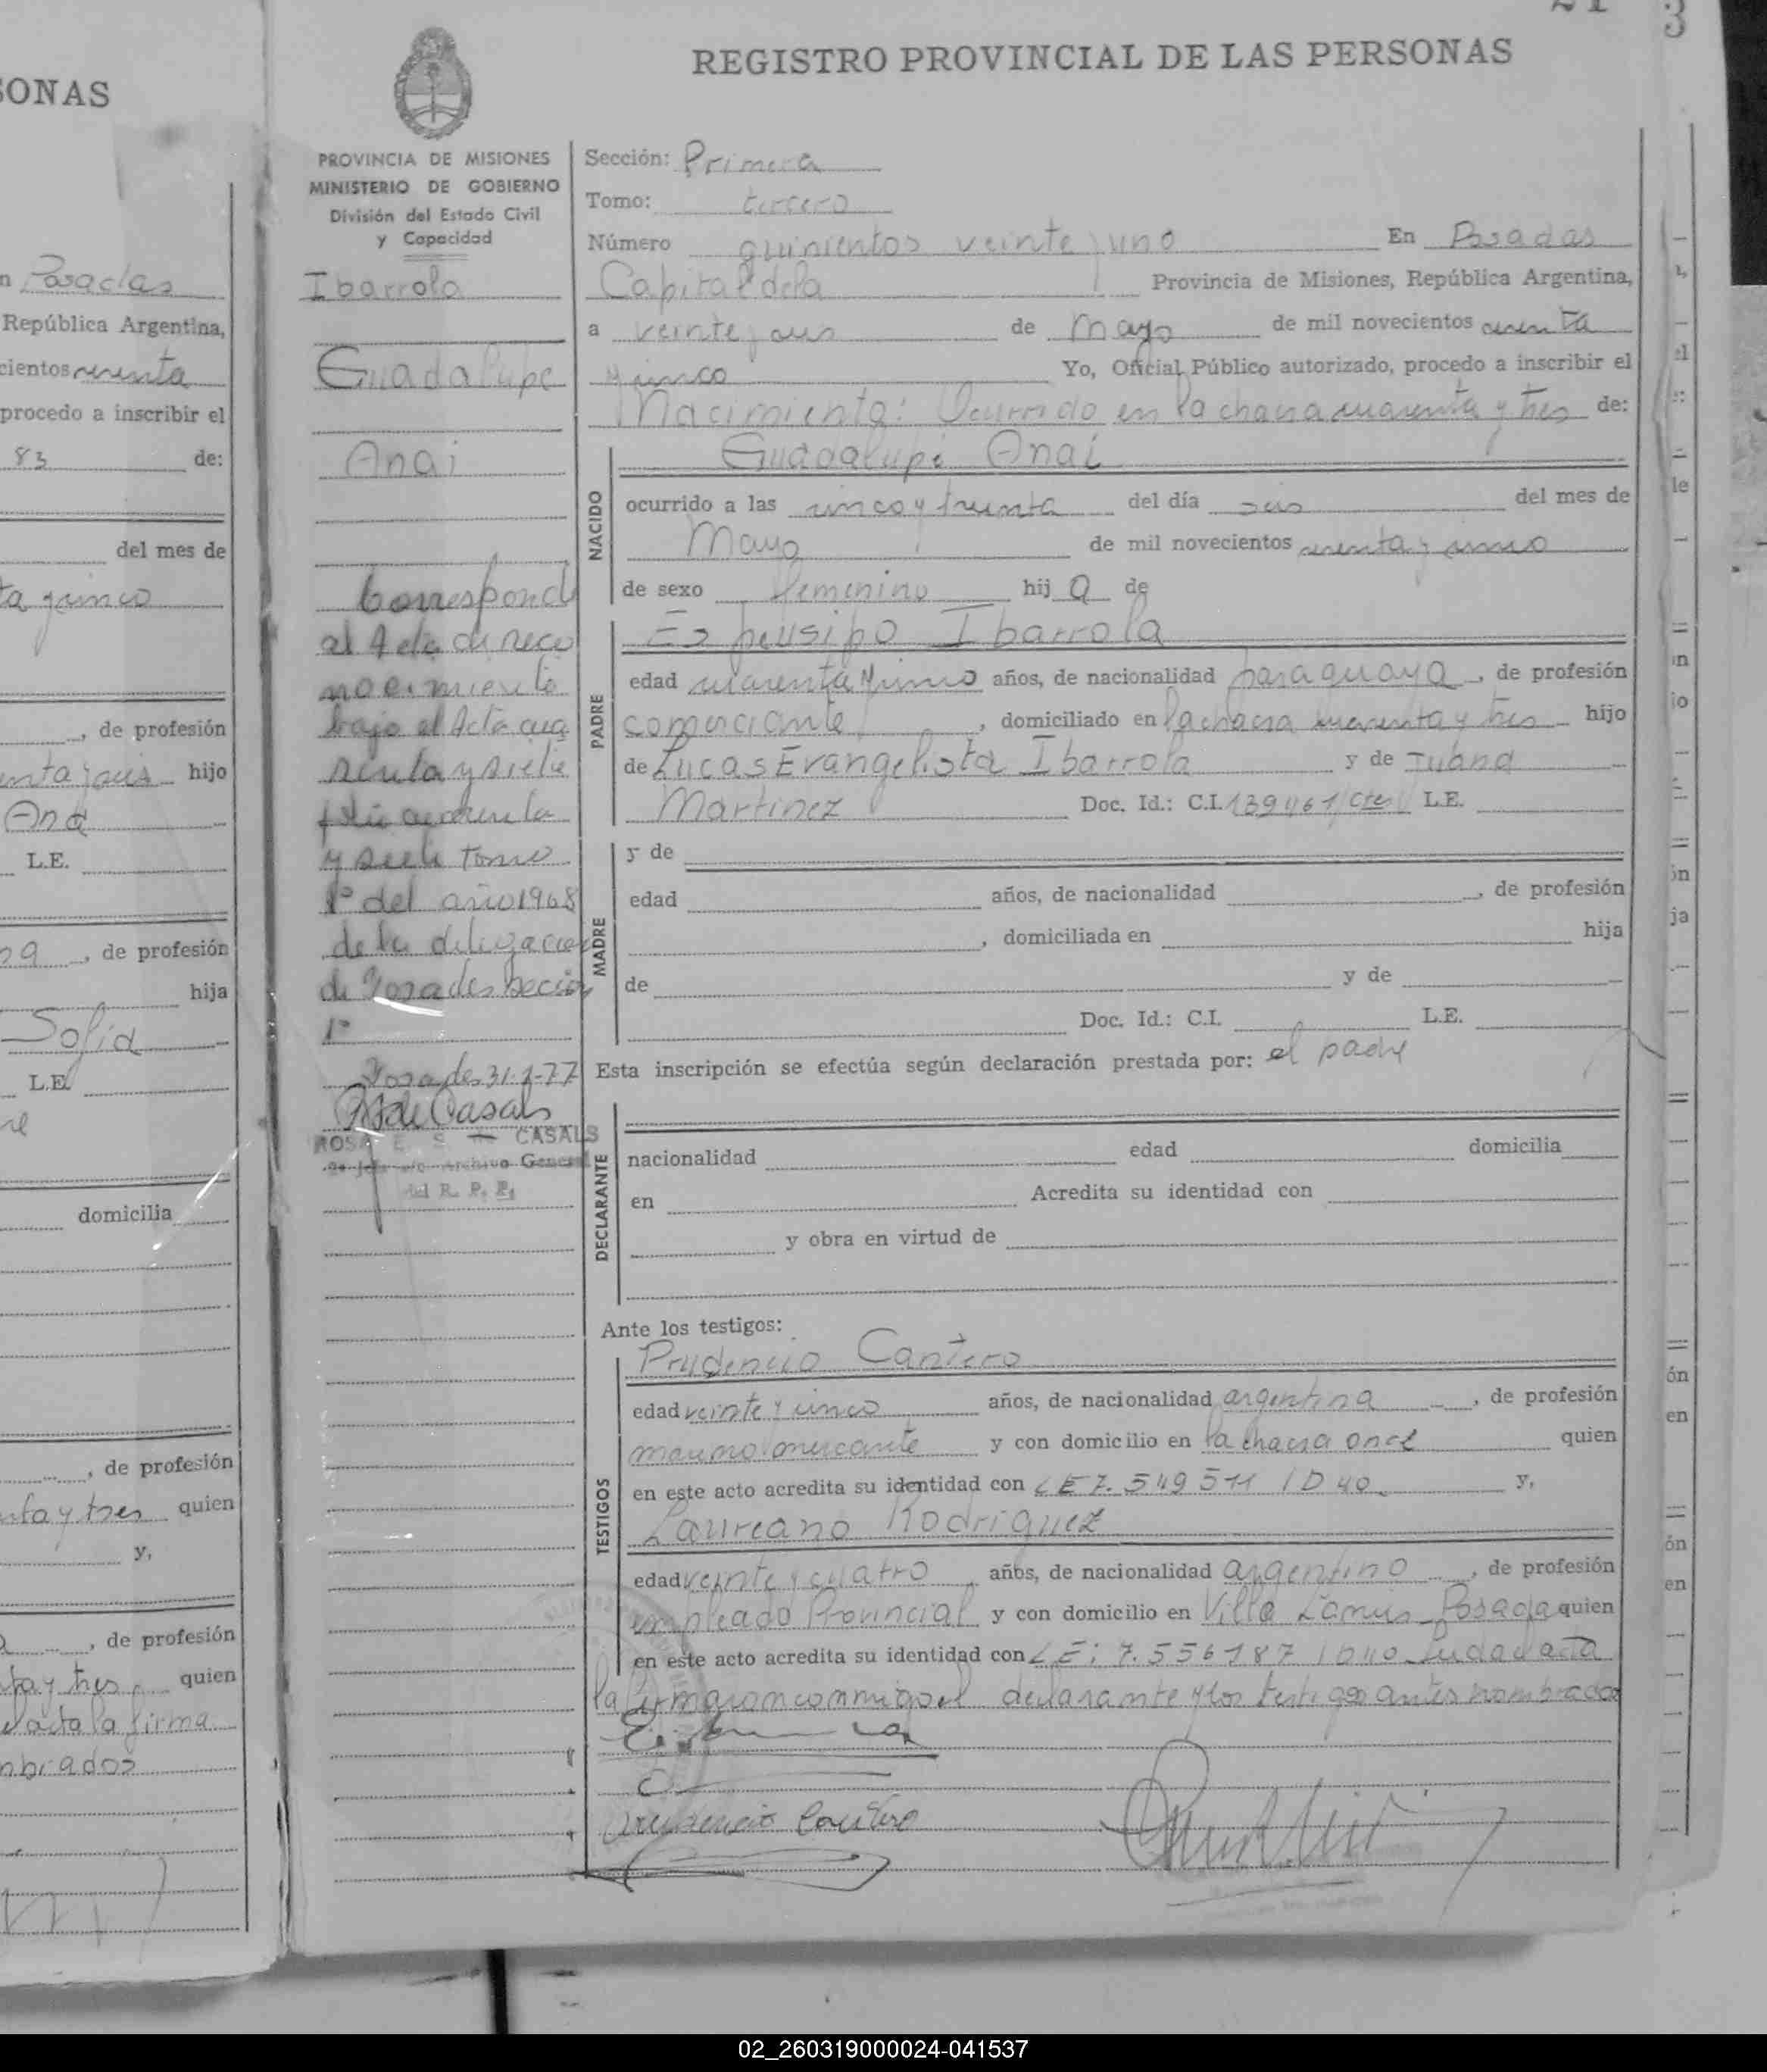 REGISTRO PROVINCIAL DE LAS PERSONAS
PROVINCIA DE MISIONES
MINISTERIO DE GOBIERNO
División del Estado Civil
y Capacidad
Ibarrola
Guadalupe
Anai
Corresponde
al Acta de reco
nocimiento
bajo el Acta cua
renta y siete
folio cuarenta
y siete tomo
1º del año 1968
de la delegacion
de Posadas Seccion
1º
Posadas 31-1-77
R de Casals
ROSA E. S. CASALS
Archivo General
del R. P. P.
Sección: Primera
Tomo: tercero
Número quinientos veinte y uno En Posadas
Capital de la Provincia de Misiones, República Argentina,
a veinte y de Mayo de mil novecientos sesenta
y cinco Yo, Oficial Público autorizado, procedo a inscribir el
Nacimiento: Ocurrido en la chacra cuarenta y tres de:
NACIDO
Guadalupe Anai
ocurrido a las cinco y treinta del día seis del mes de
Mayo de mil novecientos sesenta y cinco
de sexo femenino hij a de
PADRE
Espeusipo Ibarrola
edad cuarenta y cinco años, de nacionalidad paraguaya, de profesión
comerciante, domiciliado en la chacra cuarenta y tres hijo
de Lucas Evangelista Ibarrola y de
Martinez Doc. Id.: C.I. 139461/Ctes L.E.
MADRE
y de
edad años, de nacionalidad , de profesión
, domiciliada en hija
de y de
Doc. Id.: C.I. L.E.
Esta inscripción se efectúa según declaración prestada por: el padre
DECLARANTE
nacionalidad edad domicilia
en Acredita su identidad con
y obra en virtud de
Ante los testigos:
TESTIGOS
Prudencio Cantero
edad veinte y cinco años, de nacionalidad argentina, de profesión
marino mercante y con domicilio en la chacra once quien
en este acto acredita su identidad con LE 7.549511 / D 40 y,
Laureano Rodriguez
edad veinte y cuatro años, de nacionalidad argentino, de profesión
empleado Provincial y con domicilio en Villa Lanus Posada quien
en este acto acredita su identidad con LE: 7.556187 / D 40 Leida el acta
la firmaron conmigo el declarante y los testigos antes nombrados
Prudencio Cantero
SONAS
Posadas
República Argentina,
cientos sesenta
procedo a inscribir el
83 de:
del mes de
ta y cinco
, de profesión
hijo
Ana
L.E.
, de profesión
hija
Sofia
L.E.
domicilia
, de profesión
y tres quien
y,
, de profesión
y tres quien
el acta la firma
nbrados
02_260319000024-041537